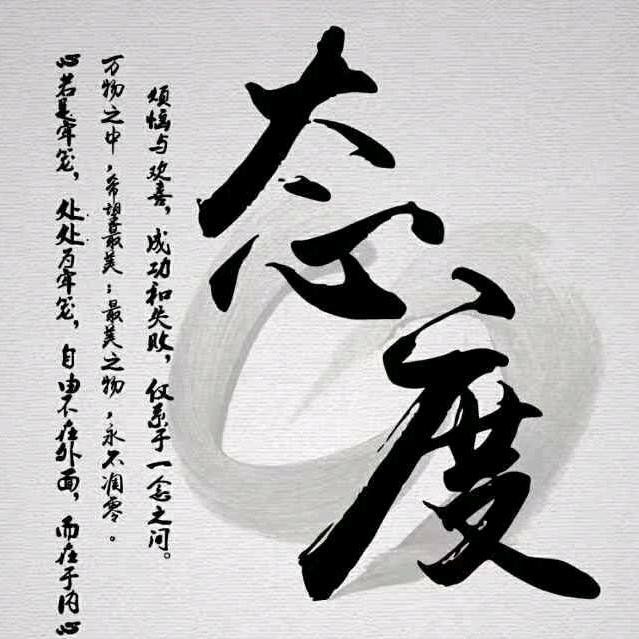 态度
烦恼与欢喜，成功和失败，仅系于一念之间。
万物之中，希望最美；最美之物，永不凋零。
心若是牢笼，处处为牢笼，自由不在外面，而在于内心